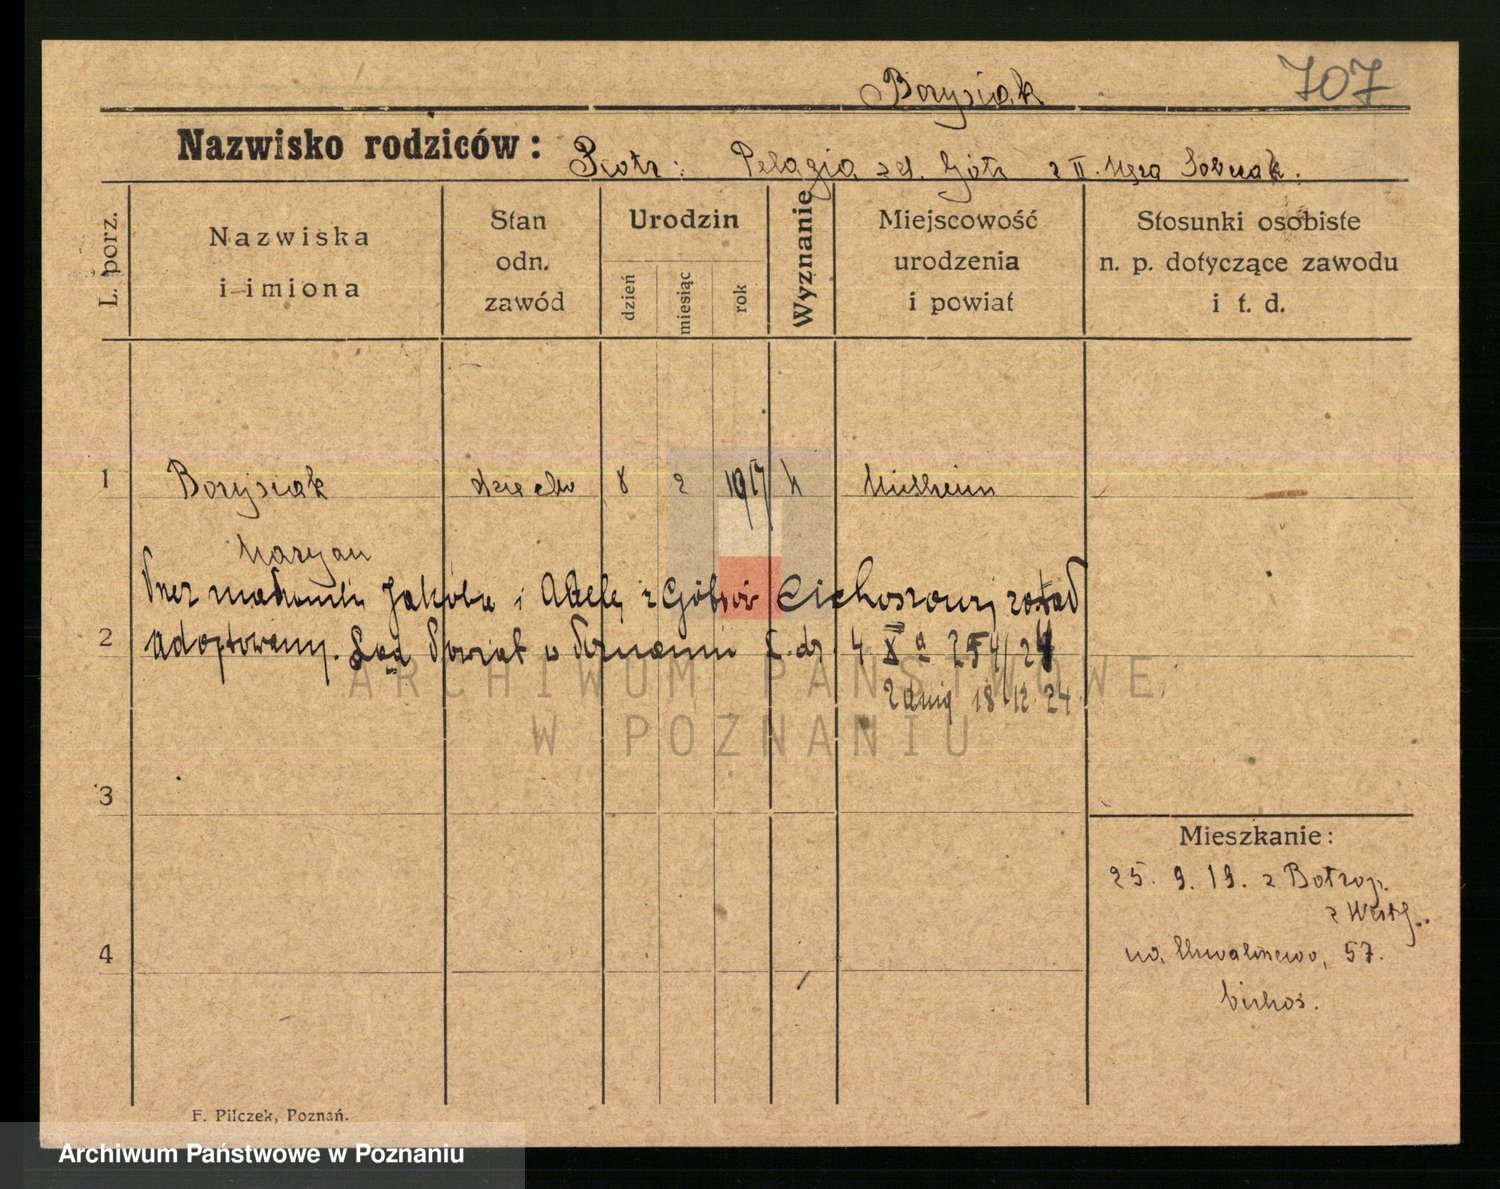 Borysiak
707
Nazwisko rodziców: Piotr: Pelagia zd. Götz z II. męża Sobczak.
L. porz.
Nazwiska i imiona
Stan odn. zawód
Urodzin
dzień
miesiąc
rok
Wyznanie
Miejscowość urodzenia i powiat
Stosunki osobiste n. p. dotyczące zawodu i t. d.
1 Borysiak dziecko 8 2 1917 k Mülheim
Maryan
Przez małżonków Jakóba i Adelę z Cichoszowy został
2 adoptowany. Sąd Powiat w Poznaniu L. dz. 4 X a 254/24
18.12 24
3
4
Mieszkanie:
25. 9. 19. z Botrop.
z Westf.
57.
Cichos.
F. Pilczek, Poznań.
ARCHIWUM PAŃSTWOWE
W POZNANIU
Archiwum Państwowe w Poznaniu